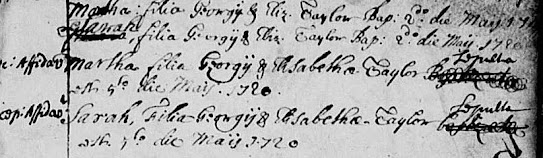 Martha: filia Georgij & Eliz: Taylor Bap: 2do die Maij 172
Sarah: filia Georgij & Eliz: Taylor Bap: 2do die Maij 1720
Martha filia Georgij & Elisabethæ Taylor Sepulta
est 5to die Maij 1720
Sarah, Filia Georgij & Elisabethæ Taylor Sepulta
est die Maij 1720